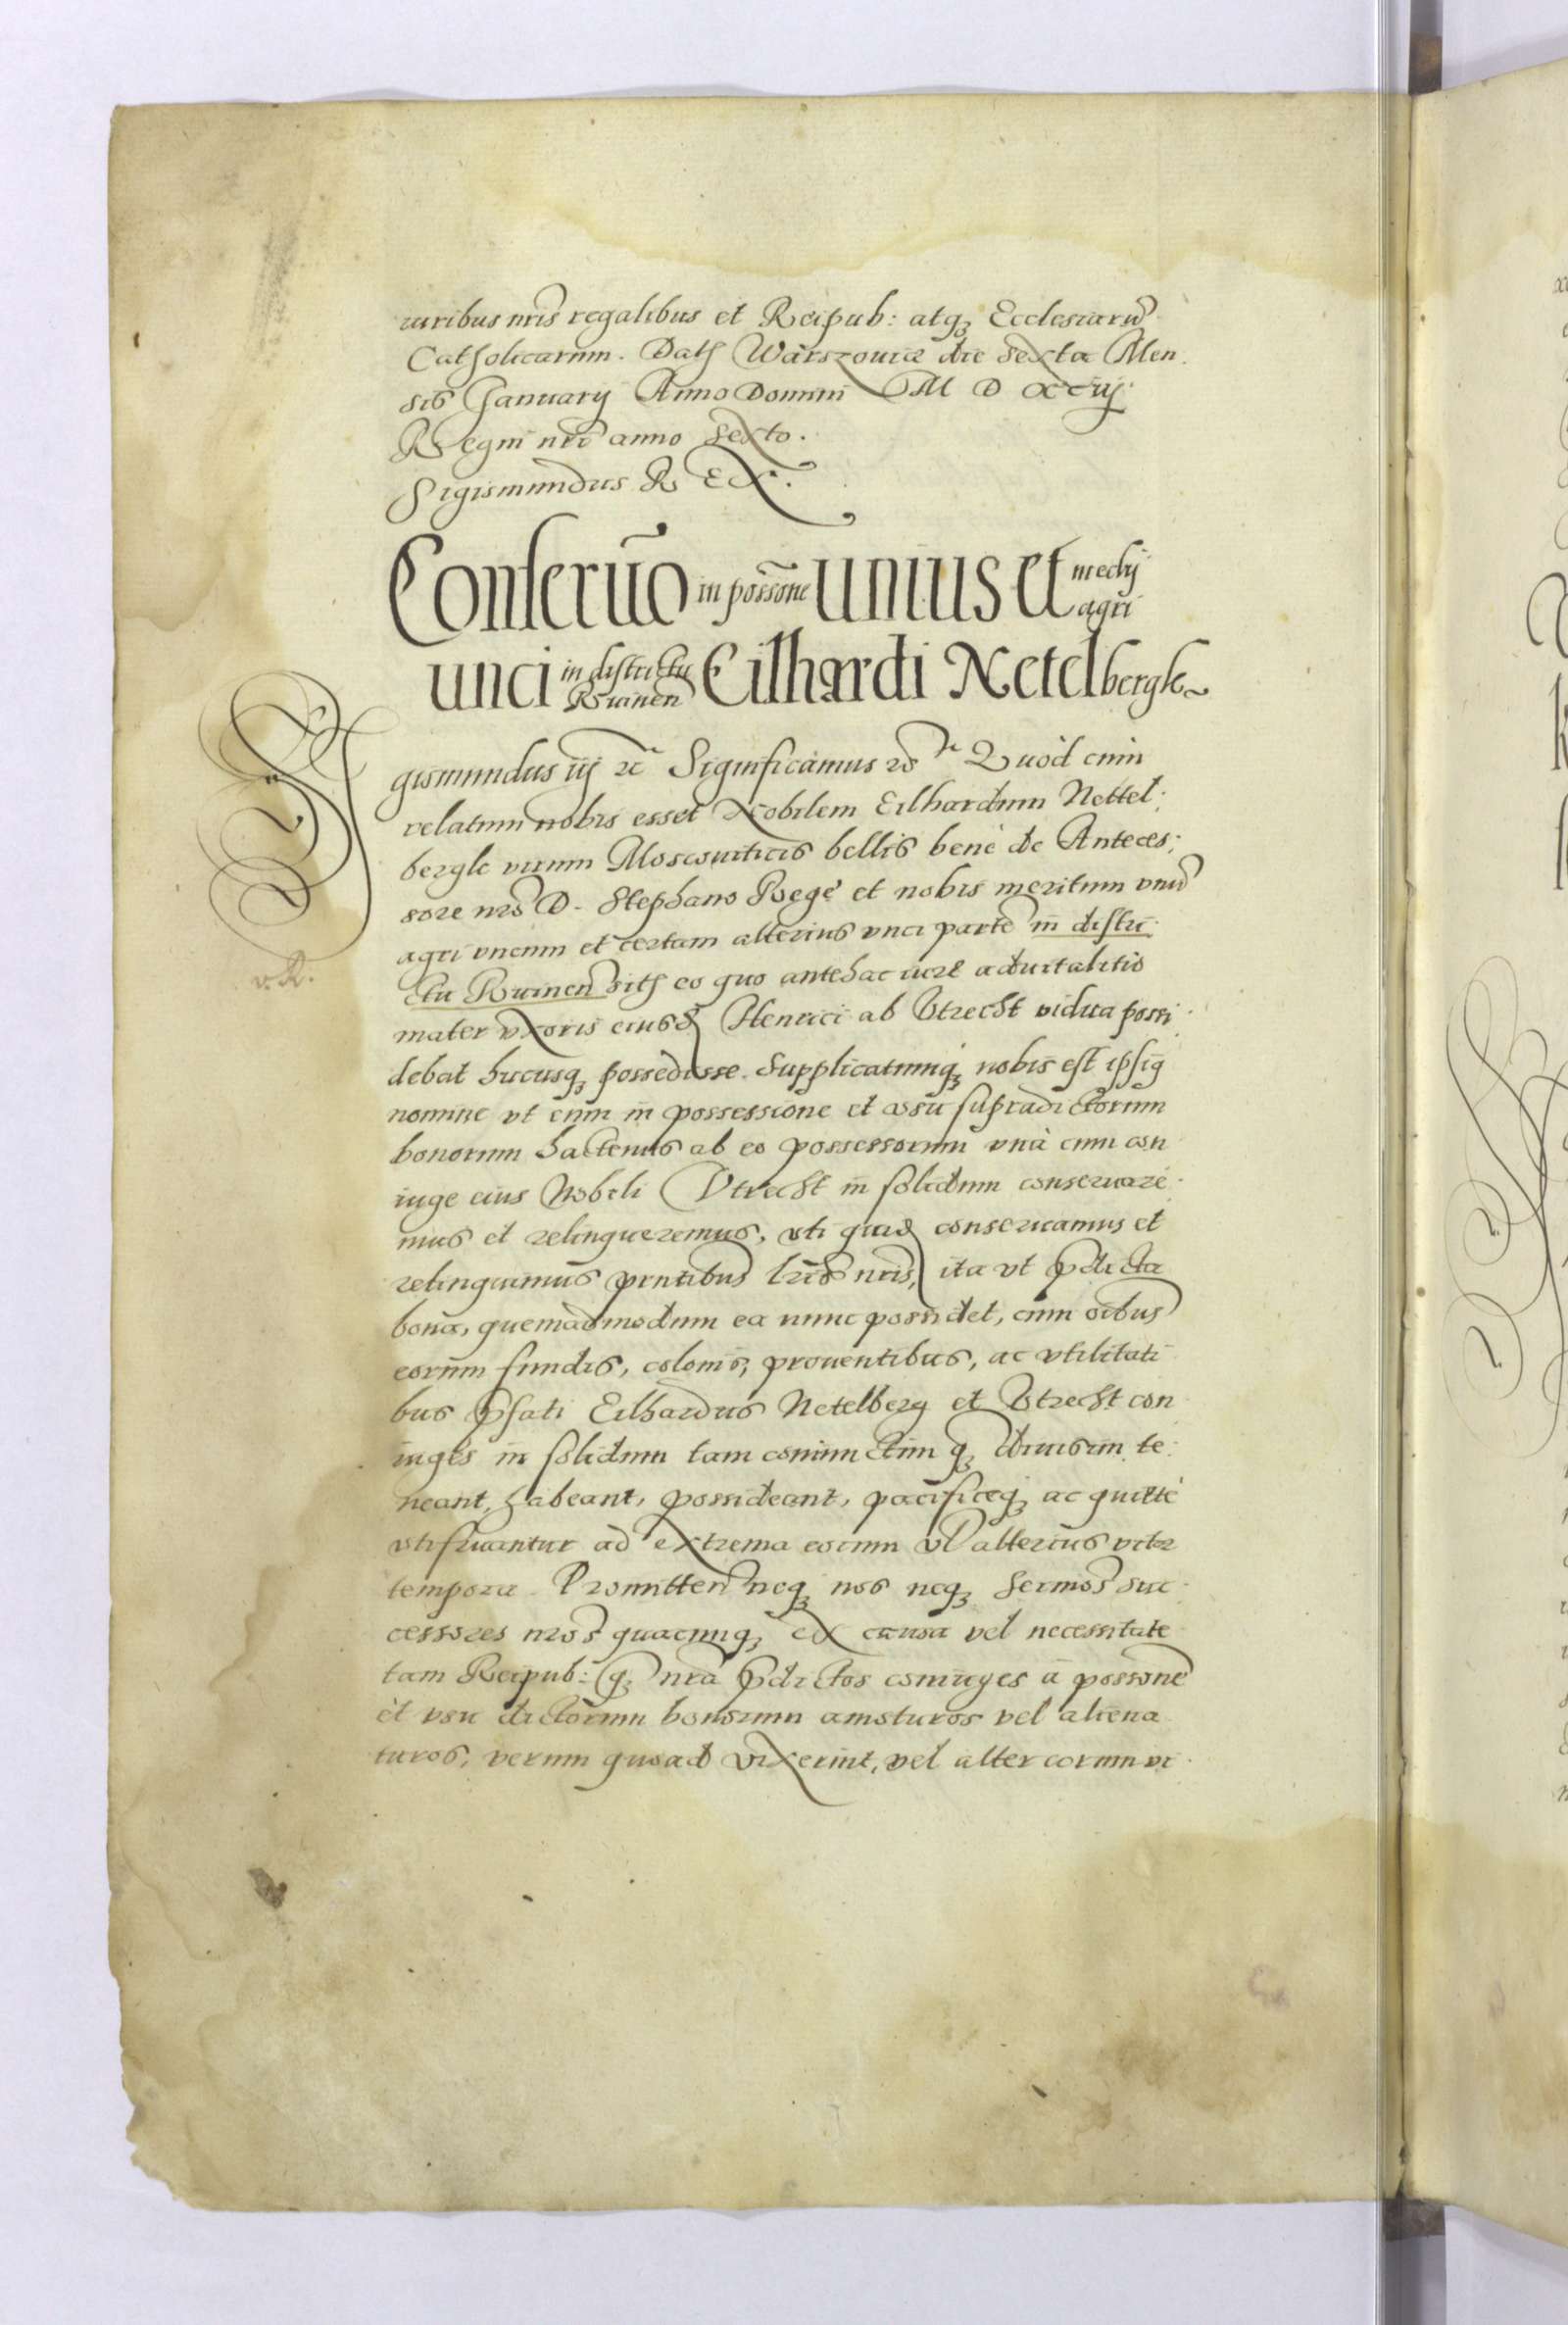 iuribus nris regalibus et Reipub: atq3 Ecclesiarũ
Catholicarum. Dath Warszouiæ die sexta Men
sis January Anno Domini M D XCiij
Regni nri anno sexto.
Sigismundus REX.
Conseruão in possone unius et medij agri
unci in districtu Rwinen Eilhardi Netelbergk
Sigismundus iij rc Significamus rc Quòd cum
relatum nobis esset Nobilem Eilhardum Nettel:
bergk virum Moscouiticis bellis bene de Anteces:
sore nro D. Stephano Rege et nobis meritum vnũ
agri vncum et certam alterius vnci partẽ in distri:
ctu Rwinen sith eo quo antehac iure aduitalitio
mater vxoris eius Henrici ab Vtrecht vidua possi
debat hucusq3 possedisse. Supplicatumq3 nobis est ipsig
nomine vt eum in possessione et vsu supradictorum
bonorum hactenus ab eo possessorum vnà cum con
iuge eius Nobili Vtrecht in solidum conseruare
mus et relinqueremus, vti quid conseruamus et
relinquimus pntibus lris nris, ita vt pdicta
bona, quemadmodum ea nunc possidet, cum oibus
eorum fundis, colonis, prouentibus, ac vtilitati
bus pfati Eilhardus Netelberg et Vtrecht con
iuges in solidum tam coniunctim q3 diuisim te:
neant, habeant, possideant, pacificeq3 ac quietè
vtifruantur ad extrema eorum vl alterius vitæ
tempora. Promitten neq3 nos neq3 Sermos suc
cessores nros quacunq3 ex causa vel necessitate
tam Reipub: q3 nra pdictos coniuges à possone
et vsu dictorum bonorum amoturos vel aliena
turos, verum quoad vixerint, vel alter eorum vi